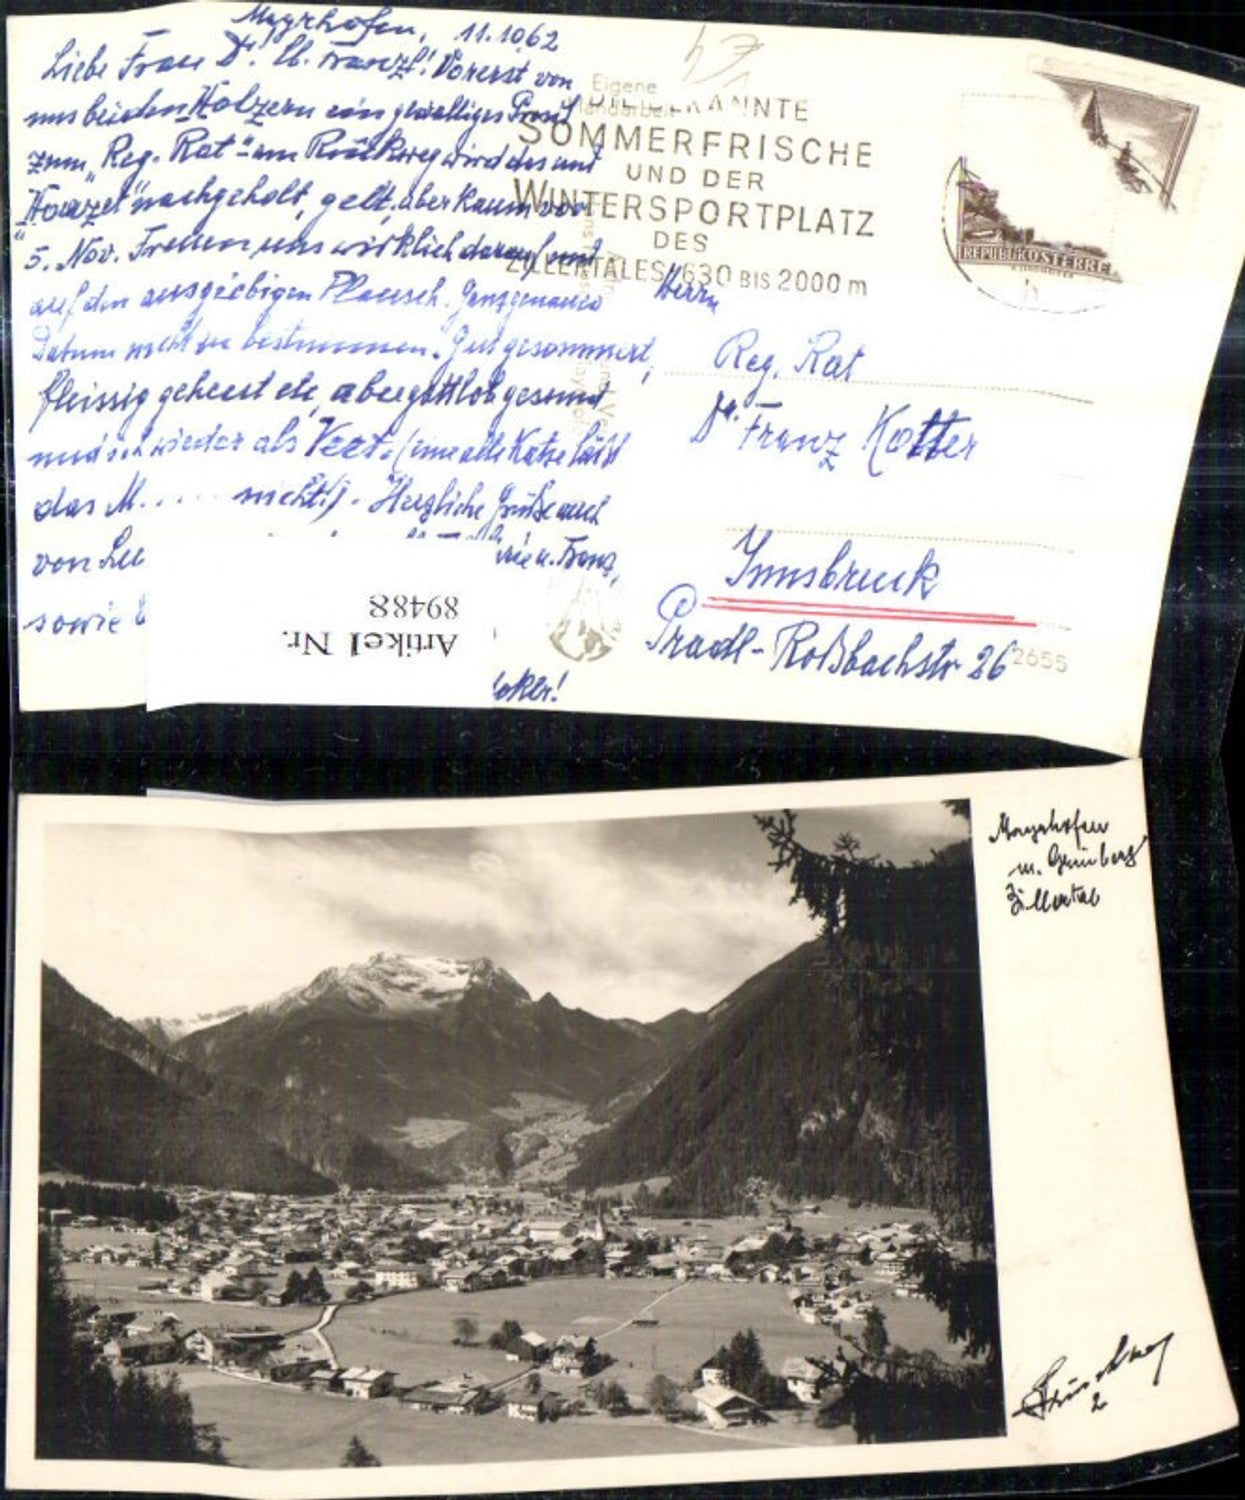 Mayrhofen, 11.10.62
Liebe Frau Dr. lb. Franzl! Vorerst von
uns beiden Holzern ein gewaltiges Prosit
zum "Reg. Rat" - am Rückweg wird das mit
"Houzel" nachgeholt, gelt, aber kaum vor
5. Nov. Freuen uns wirklich darauf und
auf den ausgiebigen Plausch. Ganz genaues
Datum nicht zu bestimmen. Gut gesommert,
fleissig geheut etc, aber gottlob gesund
und schwieder als Vert. (eine alte Katze läßt
das M.... nicht!) - Herzliche Grüße auch
von
u. Franz,
sowie
Artikel Nr.
89488
Eigene
Handarbeit
SOMMERFRISCHE
UND DER
WINTERSPORTPLATZ
DES
ZILLERTALES 630 BIS 2000 m
REPUBLIK ÖSTERREI
Herrn
Reg. Rat
Dr. Franz Kotter
Innsbruck
Pradl-Roßbachstr 26
2655
Mayrhofen
m. Grünberg
Zillertal
2